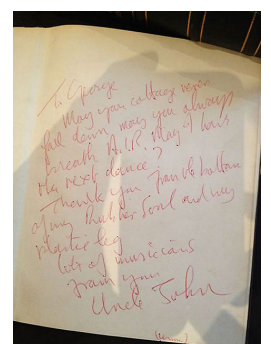 To George
May your cottage never
fall down, may you always
breath R.I.P. May I have
the next dance?
Thank you from the bottom
of my Rubber Soul and my
plastic leg
lots of musicians
from you
Uncle John